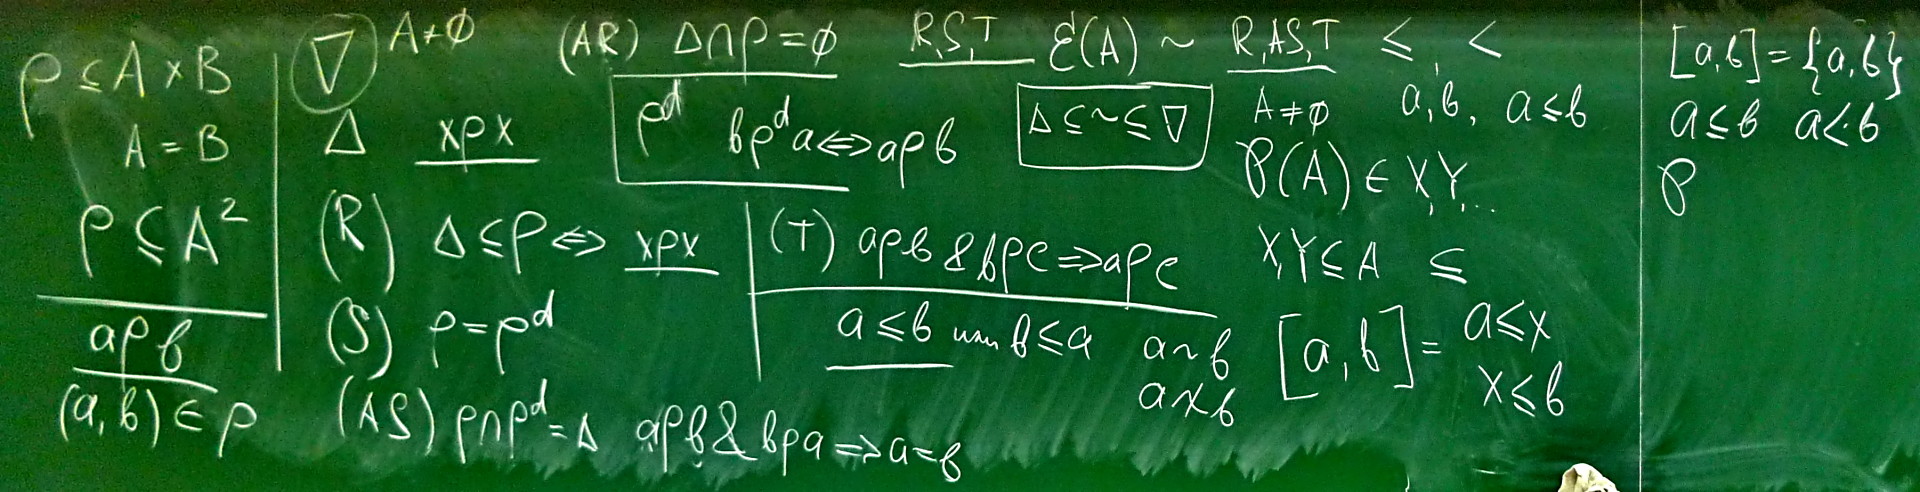 ρ ⊆ A × B
A = B
ρ ⊆ A²
aρb
(a, b) ∈ ρ
∇ A ≠ ∅
Δ xρx
(R) Δ ⊆ ρ ⇔ xρx
(S) ρ = ρᵈ
(AS) ρ ∩ ρᵈ = Δ aρb & bρa ⇒ a = b
(AR) Δ ∩ ρ = ∅
ρᵈ bρᵈa ⇔ aρb
(T) aρb & bρc ⇒ aρc
a ≤ b или b ≤ a
R, S, T ℰ(A) ~
Δ ⊆ ~ ⊆ ∇
a ~ b
R, AS, T ≤, <
A ≠ ∅ a, b, a ≤ b
𝒫(A) ∈ X, Y, ...
X, Y ⊆ A ⊆
[a, b] = a ≤ x
x ≤ b
[a, b] = {a, b}
a ≤ b a <· b
𝒫